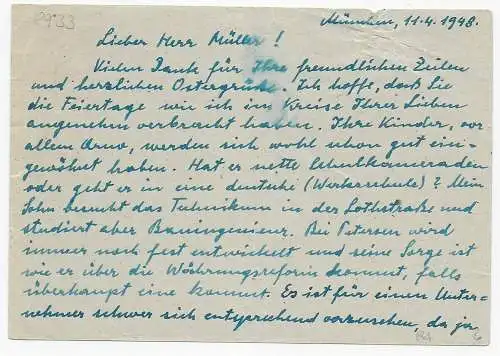 8933
München, 11.4.1948.
Lieber Herr Müller!
Vielen Dank für Ihre freundlichen Zeilen
und herzlichen Ostergrüße. Ich hoffe, daß Sie
die Feiertage wie ich im Kreise Ihrer Lieben
angenehm verbracht haben. Ihre Kinder, vor
allem Arno, werden sich wohl schon gut ein-
gewöhnt haben. Hat er nette Schulkameraden
oder geht er in eine deutsche (Werkerschule)? Mein
Sohn besucht das Technikum in der Lothstraße und
studiert aber Bauingenieur. Bei Petersen wird
immer noch fest entwickelt und seine Sorge ist
wie er über die Währungsreform kommt, falls
überhaupt eine kommt. Es ist für einen Unter-
nehmer schwer sich entsprechend vorzusehen, da ja